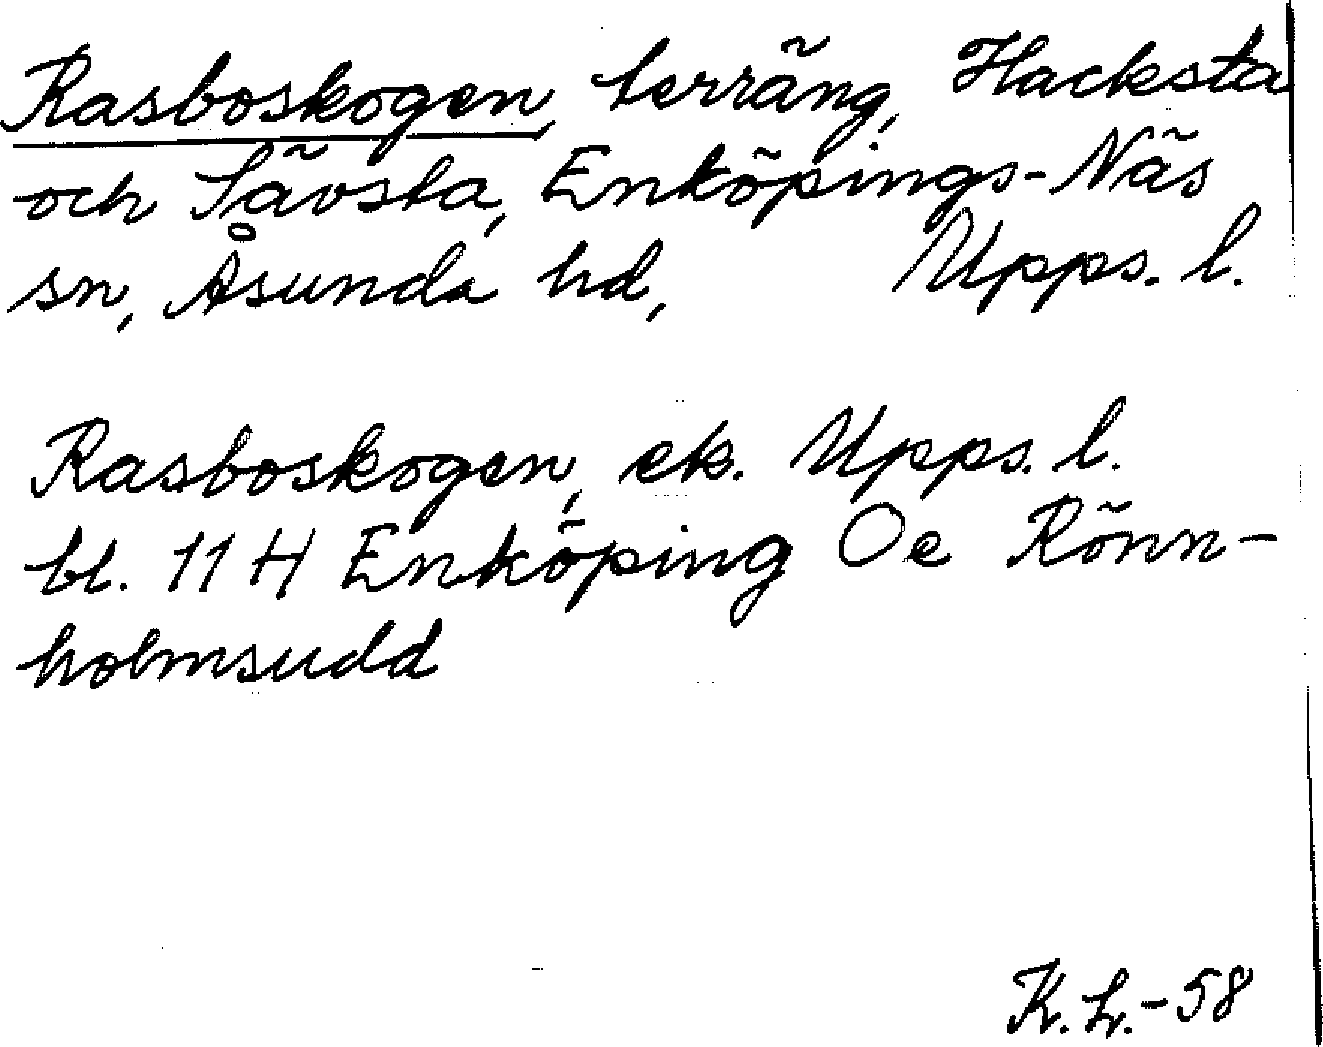 Rasboskogen, terräng, Hacksta
och Sävsta, Enköpings-Näs
sn, Åsunda hd, Upps. l.
Rasboskogen, ek. Upps. l.
bl. 11 H Enköping Oe Rönn-
holmsudd
K. L. - 58